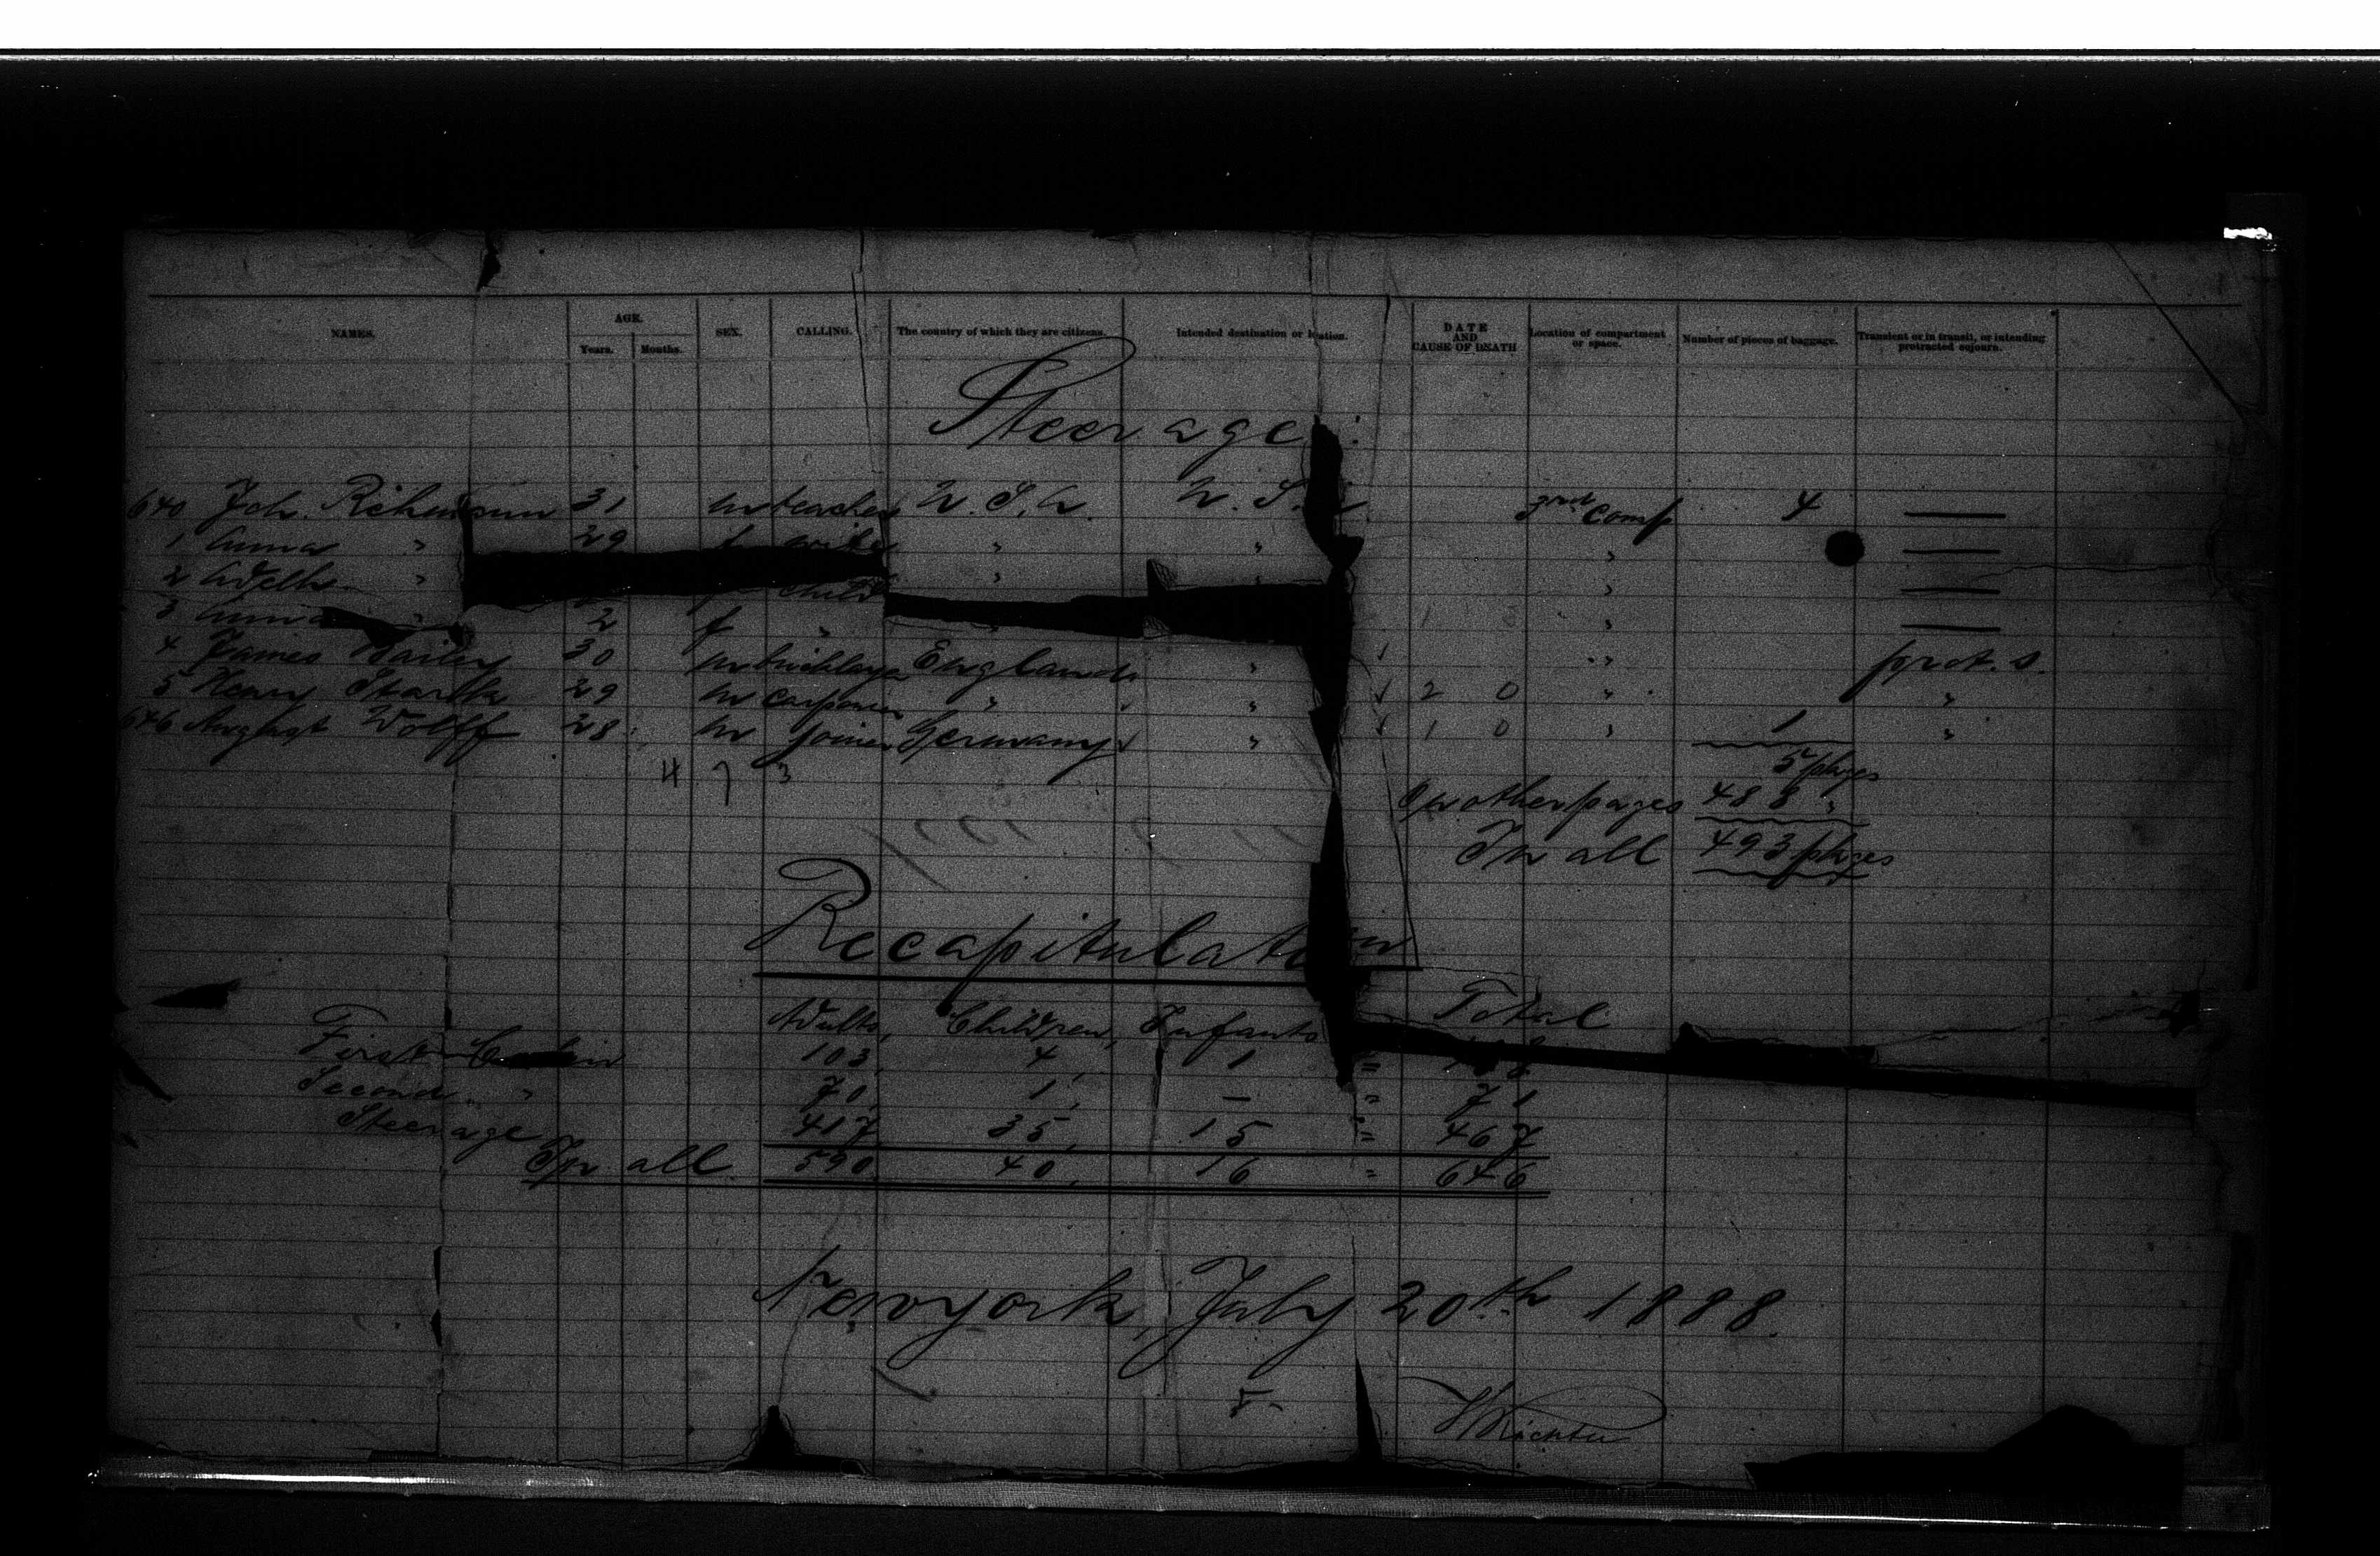 NAMES. AGE. Years. Months. SEX. CALLING. The country of which they are citizens. Intended destination or location. DATE AND CAUSE OF DEATH Location of compartment or space. Number of pieces of baggage. Transient or in transit, or intending protracted sojourn.
Steerage:
640 Joh. 31 m teacher U.S.A. U.S.A 3rd Comp 4 —
1 Anna " 29 f wife " " " —
2 " child " " " —
3 Anna " 2 f " " " —
4 James Bailey 30 m bricklayer England " " prot. s.
5 Henry Stark 29 m " " 2 0 " "
646 August Wolff 28 m joiner Germany " 1 0 " 1 "
4 7 3
5 pkges
On other pages 488 "
In all 493 pkges
Recapitulation
Adults, Children, Infants Total
First Cabin 103, 4, 1 = 108
Second " 70, 1, — = 71
Steerage 417 35, 15 = 467
In all 590 40, 16 = 646
Newyork, July 20th 1888.
WRichter